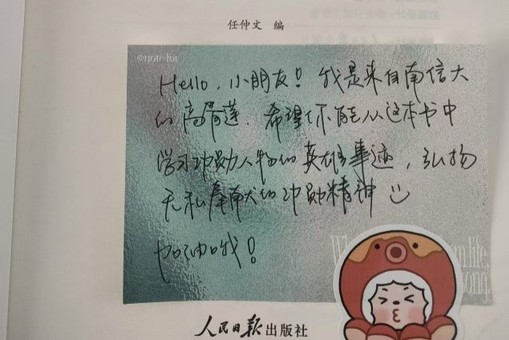 任仲文 编
©note-for
Hello,小朋友!我是来自南信大
的高雨莲.希望你能从这本书中
学习功勋人物的英雄事迹,弘扬
无私奉献的功勋精神
加油哦!
人民日报出版社